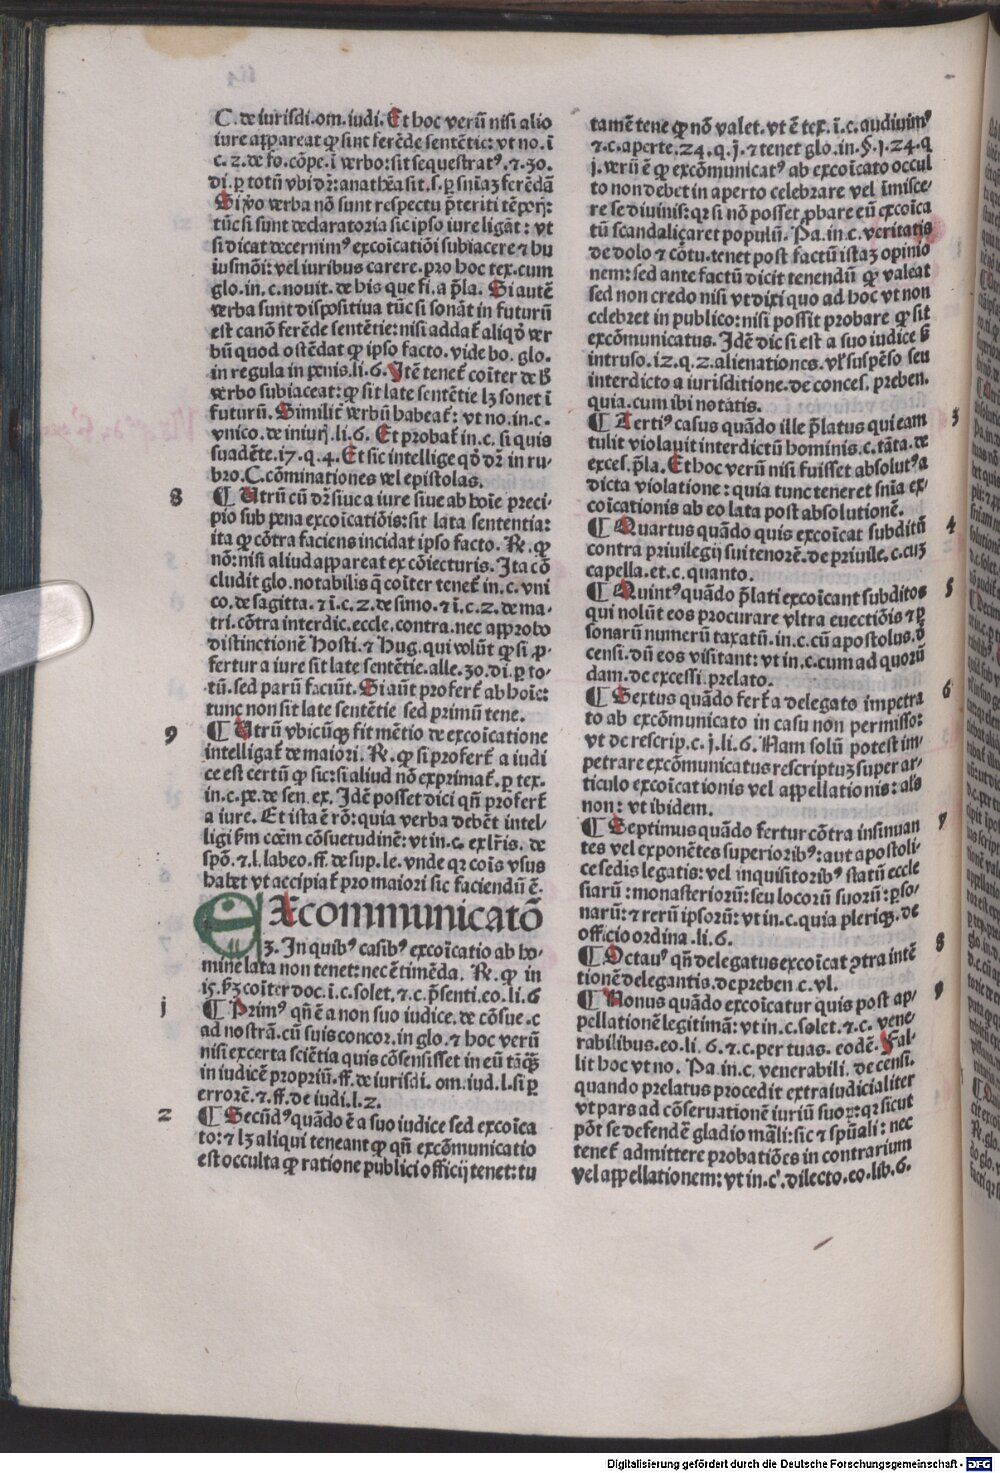 C. de iurisdi. om. iudi. Et hoc verũ nisi alio
iure appareat ꝙ sint ferẽde sentẽtie: vt no. ĩ
c. 2. de fo. cõpe. ĩ verbo: sit sequestratꝰ. ⁊ .30.
di. ꝑ totũ vbi dr̃: anathẽa sit .s. ꝑ sniaʒ ferẽdã
Si ṽo verba nõ sunt respectu p̃teriti tẽporꝭ:
tũc si sunt declaratoria sic ipso iure ligãt: vt
si dicat decernimꝰ excoĩcatiõi subiacere ⁊ hu
iusmõi: vel iuribus carere. pro hoc tex. cum
glo. in. c. nouit. de his que fi. a p̃la. Si autẽ
verba sunt dispositiua tũc si sonãt in futurũ
est canõ ferẽde sentẽtie: nisi addat̃ aliqõ ver
bũ quod ostẽdat ꝙ ipso facto. vide bo. glo.
in regula in penis. li. 6. Itẽ tenet̃ coĩter de ħ
verbo subiaceat: ꝙ sit late sentẽtie lʒ sonet ĩ
futurũ. Similit̃ verbũ habeat̃: vt no. in. c.
vnico. de iniurĳ. li. 6. Et probat̃ in. c. si quis
suadẽte. 17. q. 4. Et sic intellige qõ dr̃ in ru-
bro. C. cõminationes vel epistolas.
8
¶ Utrũ cũ dr̃ siue a iure siue ab hoĩe preci-
pio sub pena excoĩcatiõis: sit lata sententia:
ita ꝙ cõtra faciens incidat ipso facto. ℞. ꝙ
nõ: nisi aliud appareat ex cõiecturis. Ita cõ
cludit glo. notabilis q̃ coĩter tenet̃ in. c. vni
co. de sagitta. ⁊ ĩ. c. 2. de simo. ⁊ ĩ. c. 2. de ma-
tri. cõtra interdic. eccle. contra. nec approbo
distinctionẽ Hosti. ⁊ Hug. qui volũt ꝙ si ꝓ-
fertur a iure sit late sentẽtie. alle. 30. di. ꝑ to-
tũ. sed parũ faciũt. Si aũt profert̃ ab hoĩe:
tunc non sit late sentẽtie sed primũ tene.
9
¶ Utrũ vbicũqꝫ fit mẽtio de excoĩcatione
intelligat̃ de maiori. ℞. ꝙ si profert̃ a iudi
ce est certũ ꝙ sic: si aliud nõ exprimat̃. ꝑ tex.
in. c. pe. de sen. ex. Idẽ posset dici qñ profert̃
a iure. Et ista ẽ rõ: quia verba debẽt intel-
ligi ẜm cõem cõsuetudinẽ: vt in. c. ex lr̃is. de
spõ. ⁊. l. labeo. ff. de sup. le. vnde qꝛ cõis vsus
habet vt accipiat̃ pro maiori sic faciendũ ẽ.
EXcommunicatõ
3. In quibꝰ casibꝰ excoĩcatio ab ho-
mine lata non tenet: nec ẽ timẽda. ℞. ꝙ in
15. ẜʒ coĩter doc. ĩ. c. solet. ⁊. c. p̃senti. eo. li. 6
j
¶ Primꝰ qñ ẽ a non suo iudice. de cõsue. c
ad nostrã. cũ suis concor. in glo. ⁊ hoc verũ
nisi ex certa sciẽtia quis cõsensisset in eũ tãqꝫ
in iudicẽ propriũ. ff. de iurisdi. om. iud. l. si ꝑ
errorẽ. ⁊. ff. de iudi. l. 2.
2
¶ Secũdꝰ quãdo ẽ a suo iudice sed excoĩca
to: ⁊ lʒ aliqui teneant ꝙ qñ excõmunicatio
est occulta ꝙ ratione publici officĳ tenet: tu
tamẽ tene ꝙ nõ valet. vt ẽ tex. ĩ. c. audiuimꝰ
⁊. c. aperte. 24. q. j. ⁊ tenet glo. in. §. j. 24. q
j. verũ ẽ ꝙ excõmunicatꝰ ab excoĩcato occul
to non debet in aperto celebrare vel ĩmisce-
re se diuinis: qꝛ si nõ posset ꝓbare eũ excoĩca
tũ scandaliçaret populũ. Pa. in. c. veritatis
de dolo ⁊ cõtu. tenet post factũ istaʒ opinio
nem: sed ante factũ dicit tenendũ ꝙ valeat
sed non credo nisi vt dixi quo ad hoc vt non
celebret in publico: nisi possit probare ꝙ sit
excõmunicatus. Idẽ dic si est a suo iudice ẜ
intruso. 12. q. 2. alienationes. vl̃ suspẽso seu
interdicto a iurisditione. de conces. preben.
quia. cum ibi notatis.
3
¶ Tertiꝰ casus quãdo ille p̃latus qui eam
tulit violauit interdictũ hominis. c. tãta. de
exces. p̃la. Et hoc verũ nisi fuisset absolutꝰ a
dicta violatione: quia tunc teneret snĩa ex-
coĩcationis ab eo lata post absolutionẽ.
4
¶ Quartus quãdo quis excoĩcat subditũ
contra priuilegĳ sui tenorẽ. de priuile. c. cuʒ
capella. et. c. quanto.
5
¶ Quintꝰ quãdo p̃lati excoĩcant subditos
qui nolũt eos procurare vltra euectiõis ⁊ ꝑ
sonarũ numerũ taxatũ. in. c. cũ apostolus. ð
censi. dũ eos visitant: vt in. c. cum ad quorũ
dam. de excessi. prelato.
6
¶ Sextus quãdo fert̃ a delegato impetra
to ab excõmunicato in casu non permisso:
vt de rescrip. c. j. li. 6. Nam solũ potest im-
petrare excõmunicatus rescriptuʒ super ar-
ticulo excoĩcationis vel appellationis: als̃
non: vt ibidem.
7
¶ Septimus quãdo fertur cõtra insinuan
tes vel exponẽtes superioribꝰ: aut apostoli-
ce sedis legatis: vel inquisitoribꝰ statũ eccle
siarũ: monasteriorũ: seu locorũ suorũ: ꝑso-
narũ: ⁊ rerũ ipsorũ: vt in. c. quia pleriqꝫ. de
officio ordina. li. 6.
8
¶ Octauꝰ qñ delegatus excoĩcat ꝯtra intẽ
tionẽ delegantis. de preben. c. vl.
9
¶ Nonus quãdo excoĩcatur quis post ap-
pellationẽ legitimã: vt in. c. solet. ⁊. c. vene-
rabilibus. eo. li. 6. ⁊. c. per tuas. eodẽ. Fal-
lit hoc vt no. Pa. in. c. venerabili. de censi.
quando prelatus procedit extraiudicialiter
vt pars ad cõseruationẽ iuriũ suoꝝ: qꝛ sicut
põt se defendẽ gladio mãli: sic ⁊ spũali: nec
tenet̃ admittere probatiões in contrarium
vel appellationem: vt in. c. dilecto. eo. lib. 6.
Digitalisierung gefördert durch die Deutsche Forschungsgemeinschaft - DFG